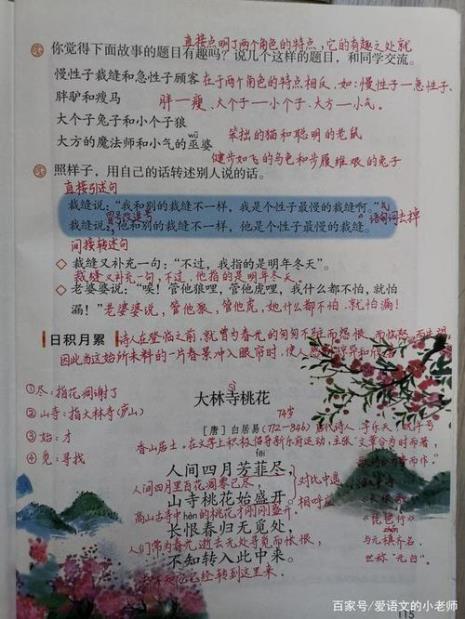 直接点明了两个角色的特点，它的有趣之处就
你觉得下面故事的题目有趣吗？说几个这样的题目，和同学交流。
慢性子裁缝和急性子顾客 在于两个角色的特点相反。如：慢性子—急性子、
胖驴和瘦马 胖—瘦、大个子—小个子、大方—小气。
大个子兔子和小个子狼
wū
大方的魔法师和小气的巫婆 笨拙的猫和聪明的老鼠
健步如飞的乌龟和步履维艰的兔子
照样子，用自己的话转述别人说的话。
直接引述句
裁缝说：“我和别的裁缝不一样，我是个性子最慢的裁缝啊。” 语句词去掉
裁缝说，他和别的裁缝不一样，他是个性子最慢的裁缝。
间接转述句
◇ 裁缝又补充一句：“不过，我指的是明年冬天”。
裁缝又补充一句，不过，他指的是明年冬天。
◇ 老婆婆说：“唉！管他狼哩，管他虎哩，我什么都不怕，就怕
漏！” 老婆婆说，管他狼，管他虎，她什么都不怕，就怕漏！
日积月累 诗人在登临之前，就曾为春光的匆匆不驻而怨恨，
因此当这始所未料的一片春景冲入眼帘时，使人感到
①尽：指花凋谢了
sì
大林寺桃花
②山寺：指大林寺（庐山）
74岁
[唐] 白居易（772—846）
③始：才
香山居士，在文学上积极倡导新乐府运动，主张“文章合为时而著，
④觅：寻找
fēi
人间四月芳菲尽，
人间四月里百花凋零已尽， 对比中遇
山寺桃花始盛开。 相呼应
高山古寺中的桃花才刚刚盛开。
长恨春归无觅处， 《琵琶行》
人们常为春光逝去无处寻觅而怅恨， 与元稹齐名，
不知转入此中来。 世称“元白”。
已经转到这里来。
115
百家号/爱语文的小老师